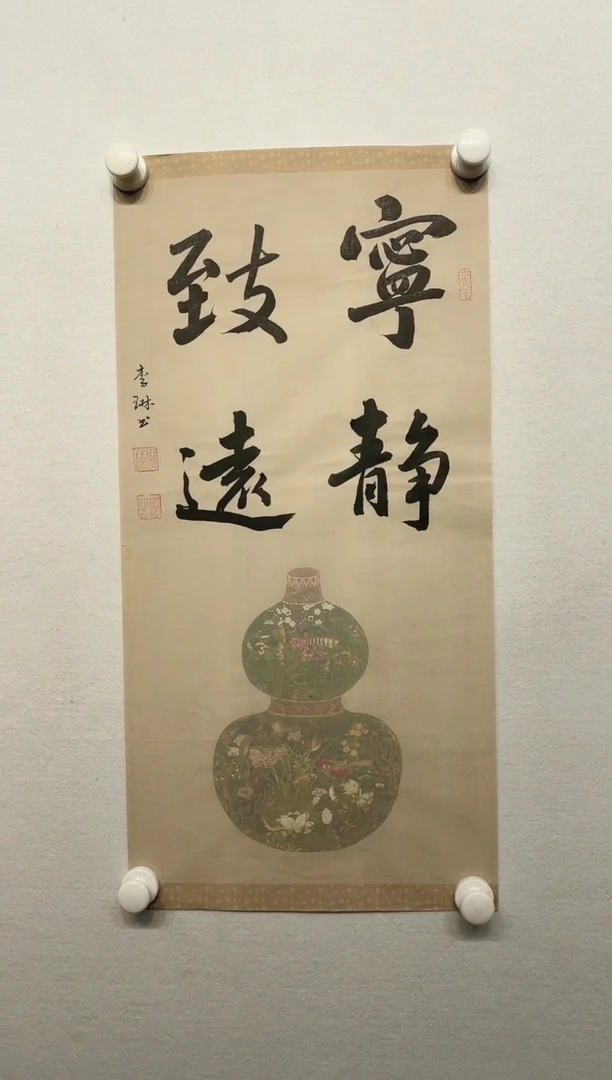 寧靜
致遠
李琳书